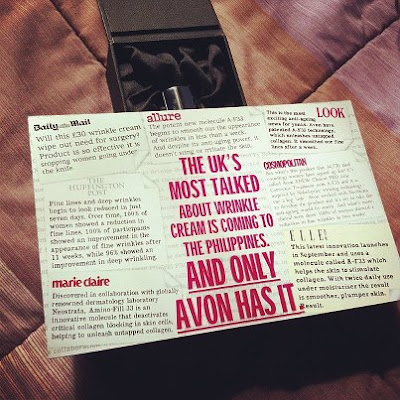 Daily Mail
Will this £30 wrinkle cream
wipe out need for surgery?
Product is so effective it's
stopping women going under
the knife
allure
The potent new molecule A-F33
begins to smooth out the appearance
of wrinkles in less than a week.
And despite its anti-aging power, it
doesn't sting or irritate the skin.
LOOK
This is the most
exciting anti-ageing
news for years. Avon have
patented A-F33 technology,
which unleashes untapped
collagen. It smoothed our fine
lines after a week.
THE HUFFINGTON POST
Fine lines and deep wrinkles
begin to look reduced in just
seven days. Over time, 100% of
women showed a reduction in
fine lines. 100% of participants
showed an improvement in the
appearance of fine wrinkles after
11 weeks, while 96% showed an
improvement in deep wrinkling.
THE UK'S
MOST TALKED
ABOUT WRINKLE
CREAM IS COMING TO
THE PHILIPPINES.
AND ONLY
AVON HAS IT.
COSMOPOLITAN
ELLE
This latest innovation launches
in September and uses a
molecule called A-F33 which
helps the skin to stimulate
collagen. With twice daily use
under moisturiser the result
is smoother, plumper skin.
Result.
marie claire
Discovered in collaboration with globally
renowned dermatology laboratory
Neostrata, Amino-Fill 33 is an
innovative molecule that deactivates
critical collagen blocking in skin cells,
helping to unleash untapped collagen.